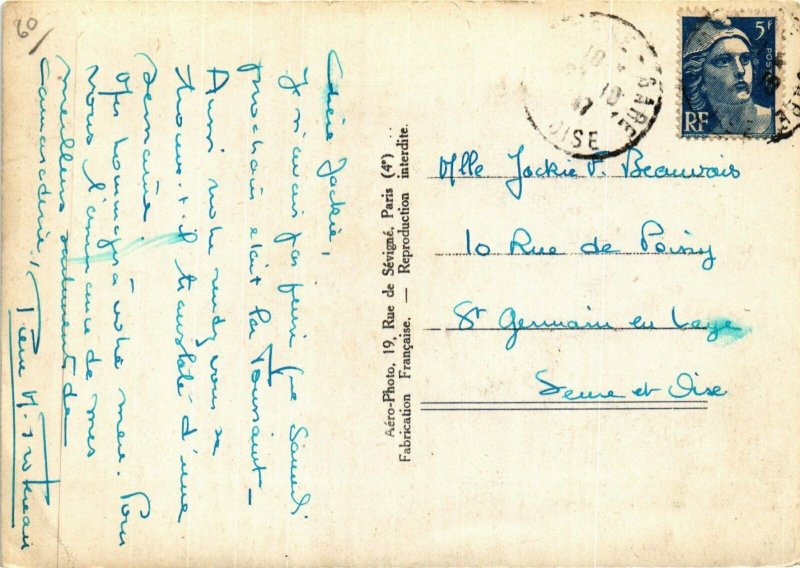 20/
Chère Jackie,
J'n'avais pas pensé que Samedi
prochain était la Toussaint –
Aussi notre rendez-vous se
trouve-t-il translaté d'une
semaine.
Mes hommages à votre mère. Pour
vous l'assurance de mes
meilleurs sentiments de
camaraderie,
Pierre
Aéro-Photo, 19, Rue de Sévigné, Paris (4e)
Fabrication Française. — Reproduction interdite.
GARE
10
47
OISE
5F
POSTES
RF
Mlle Jackie P. Beauvais
10 Rue de Poissy
St Germain en Laye
Seine et Oise